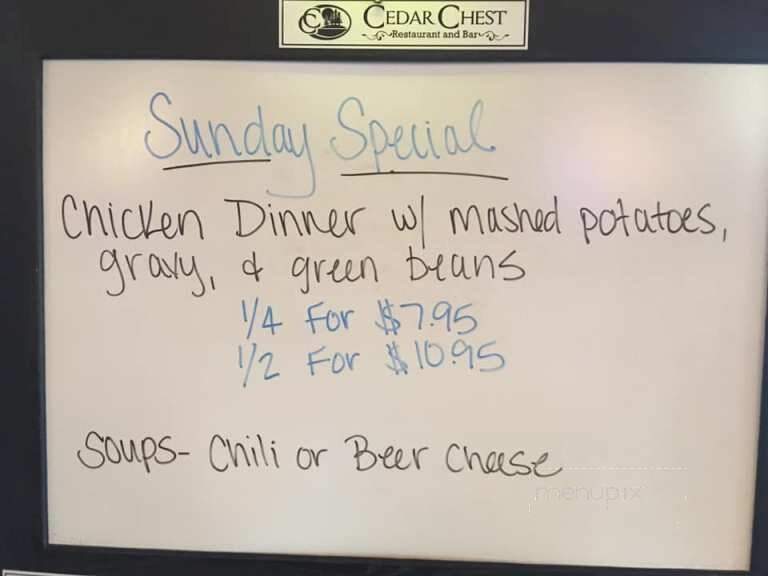 CEDAR CHEST
Restaurant and Bar
Sunday Special
Chicken Dinner w/ mashed potatoes,
gravy, & green beans
1/4 For $7.95
1/2 For $10.95
Soups- Chili or Beer Cheese
menupix